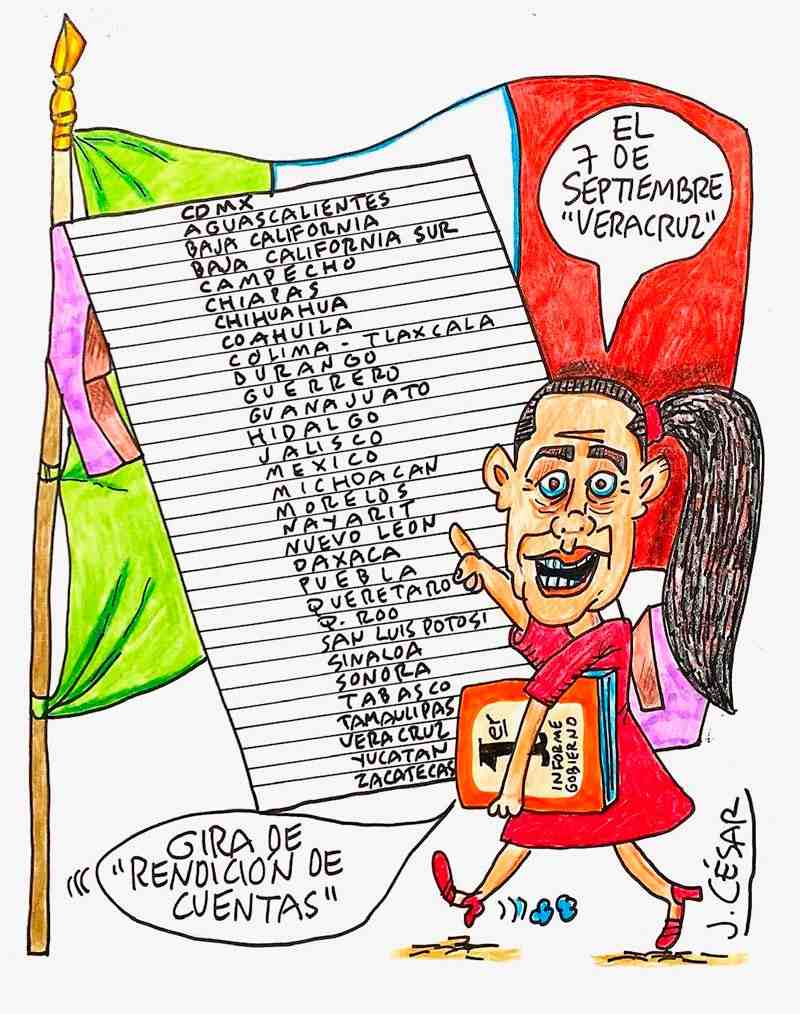 EL
7 DE
SEPTIEMBRE
"VERACRUZ"
CDMX
AGUASCALIENTES
BAJA CALIFORNIA
BAJA CALIFORNIA SUR
CAMPECHO
CHIAPAS
CHIHUAHUA
COAHUILA
COLIMA - TLAXCALA
DURANGO
GUERRERO
GUANAJUATO
HIDALGO
JALISCO
MEXICO
MICHOACAN
MORELOS
NAYARIT
NUEVO LEON
OAXACA
PUEBLA
QUERETARO
Q. ROO
SAN LUIS POTOSI
SINALOA
SONORA
TABASCO
TAMAULIPAS
VERACRUZ
YUCATAN
ZACATECAS
1er
INFORME
GOBIERNO
GIRA DE
"RENDICIÓN DE
CUENTAS"
J. CÉSAR